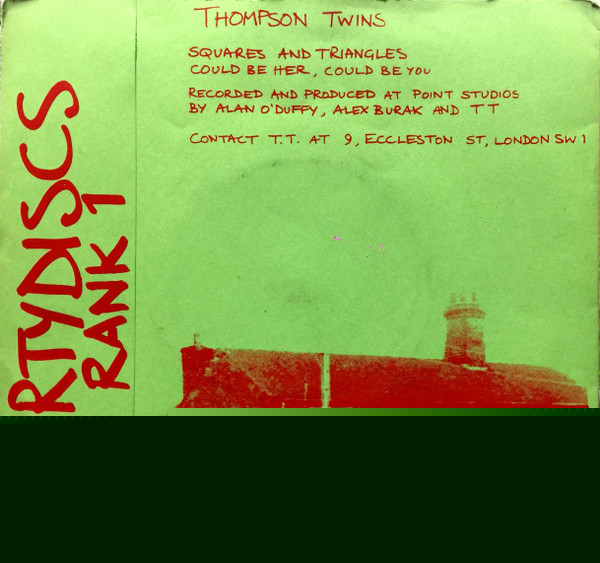 THOMPSON TWINS
SQUARES AND TRIANGLES
COULD BE HER, COULD BE YOU
RECORDED AND PRODUCED AT POINT STUDIOS
BY ALAN O'DUFFY, ALEX BURAK AND TT
CONTACT T.T. AT 9, ECCLESTON ST, LONDON SW1
RTYDISCS
RANK 1